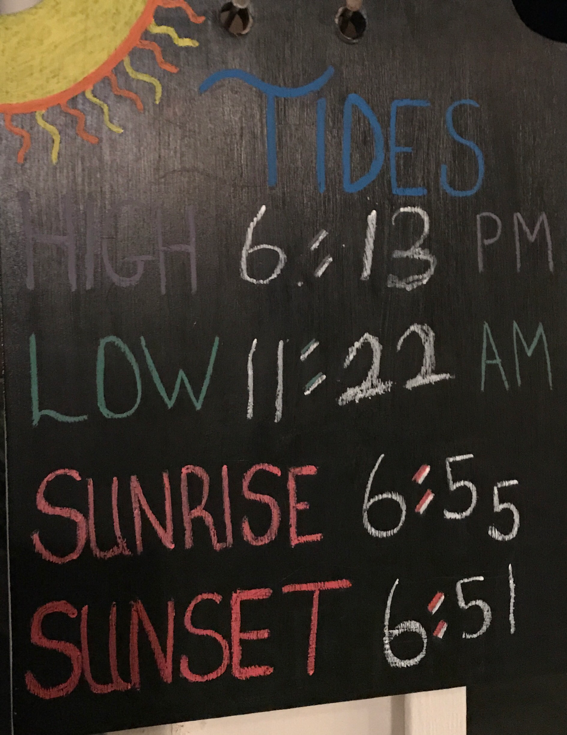 TIDES
HIGH 6:13 PM
LOW 11:22 AM
SUNRISE 6:55
SUNSET 6:51